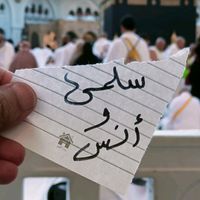 سلمى
و
أنس